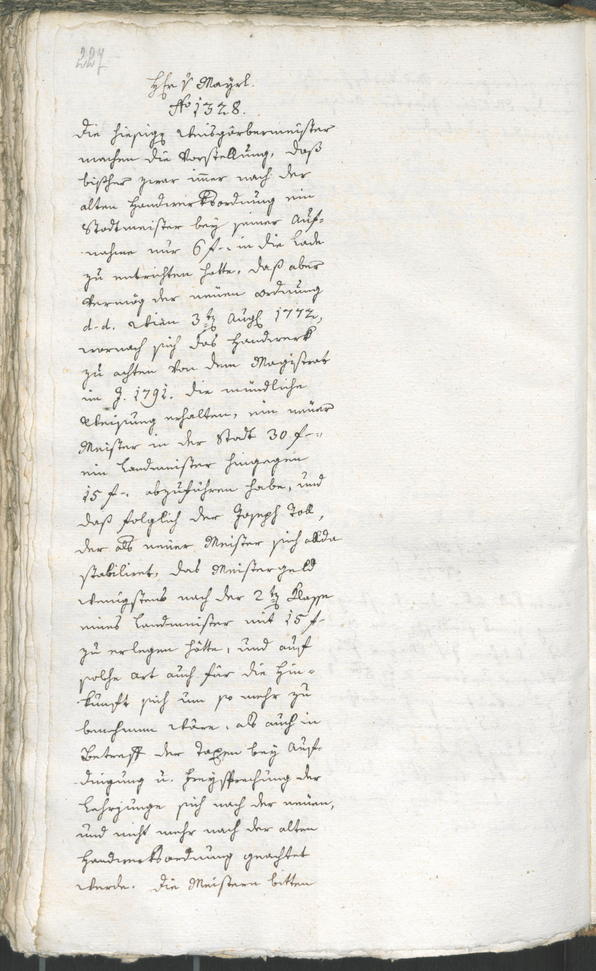 227
Hr v Mayrl.
No 1328.
Die hiesige Weisgärbermeister
machen die Vorstellung, daß
bisher zwar im̄er nach der
alten Handwerksordnung ein
Stadtmeister bey seiner Auf-
nahme nur 6 f -. in die Lade
zu entrichten hatte, daß aber
vermög der neuen Ordnung
d.d. Wien 3ts Augl 1772,
wornach sich das Handwerk
zu achten von dem Magistrat
im J. 1791. die mündliche
Weisung erhalten, ein neuer
Meister in der Stadt 30 f -.
ein Landmeister hingegen
15 f -. abzuführen habe, und
daß folglich der Joseph Toll,
der als neuer Meister sich allda
stabiliret, das Meistergeld
wenigstens nach der 2ts Klasse
eines Landmeister mit 15 f
zu erlegen hätte, und auf
solche art auch für die Hin-
kunft sich um so mehr zu
benehmen wäre, als auch in
Betreff der Taxen bey Auf-
dingung u. Freysprechung der
Lehrjunge sich nach der neuen,
und nicht mehr nach der alten
Handwerksordnung geachtet
werde. Die Meistern bitten